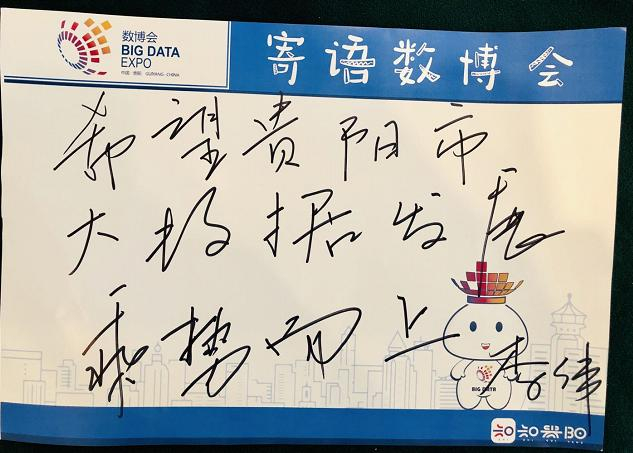 数博会
BIG DATA
EXPO
中国·贵阳 GUIYANG·CHINA
寄语数博会
希望贵阳市
大数据发展
乘势而上
李伟
BIG DATA
知知贵阳